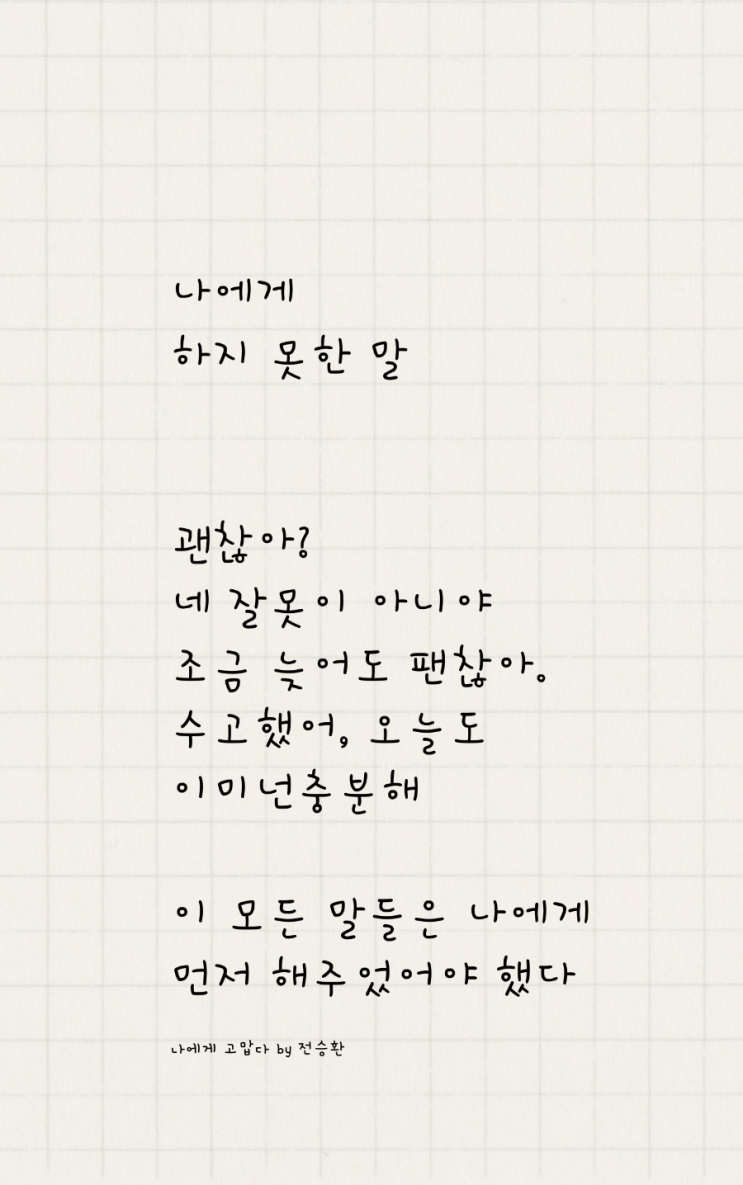 나에게
하지 못한 말
괜찮아?
네 잘못이 아니야
조금 늦어도 괜찮아.
수고했어, 오늘도
이미넌충분해
이 모든 말들은 나에게
먼저 해주었어야 했다
나에게 고맙다 by 전승환